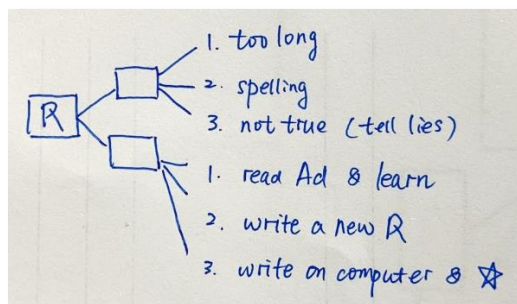 1. too long
2. spelling
R
3. not true (tell lies)
1. read Ad & learn
2. write a new R
3. write on computer & ☆